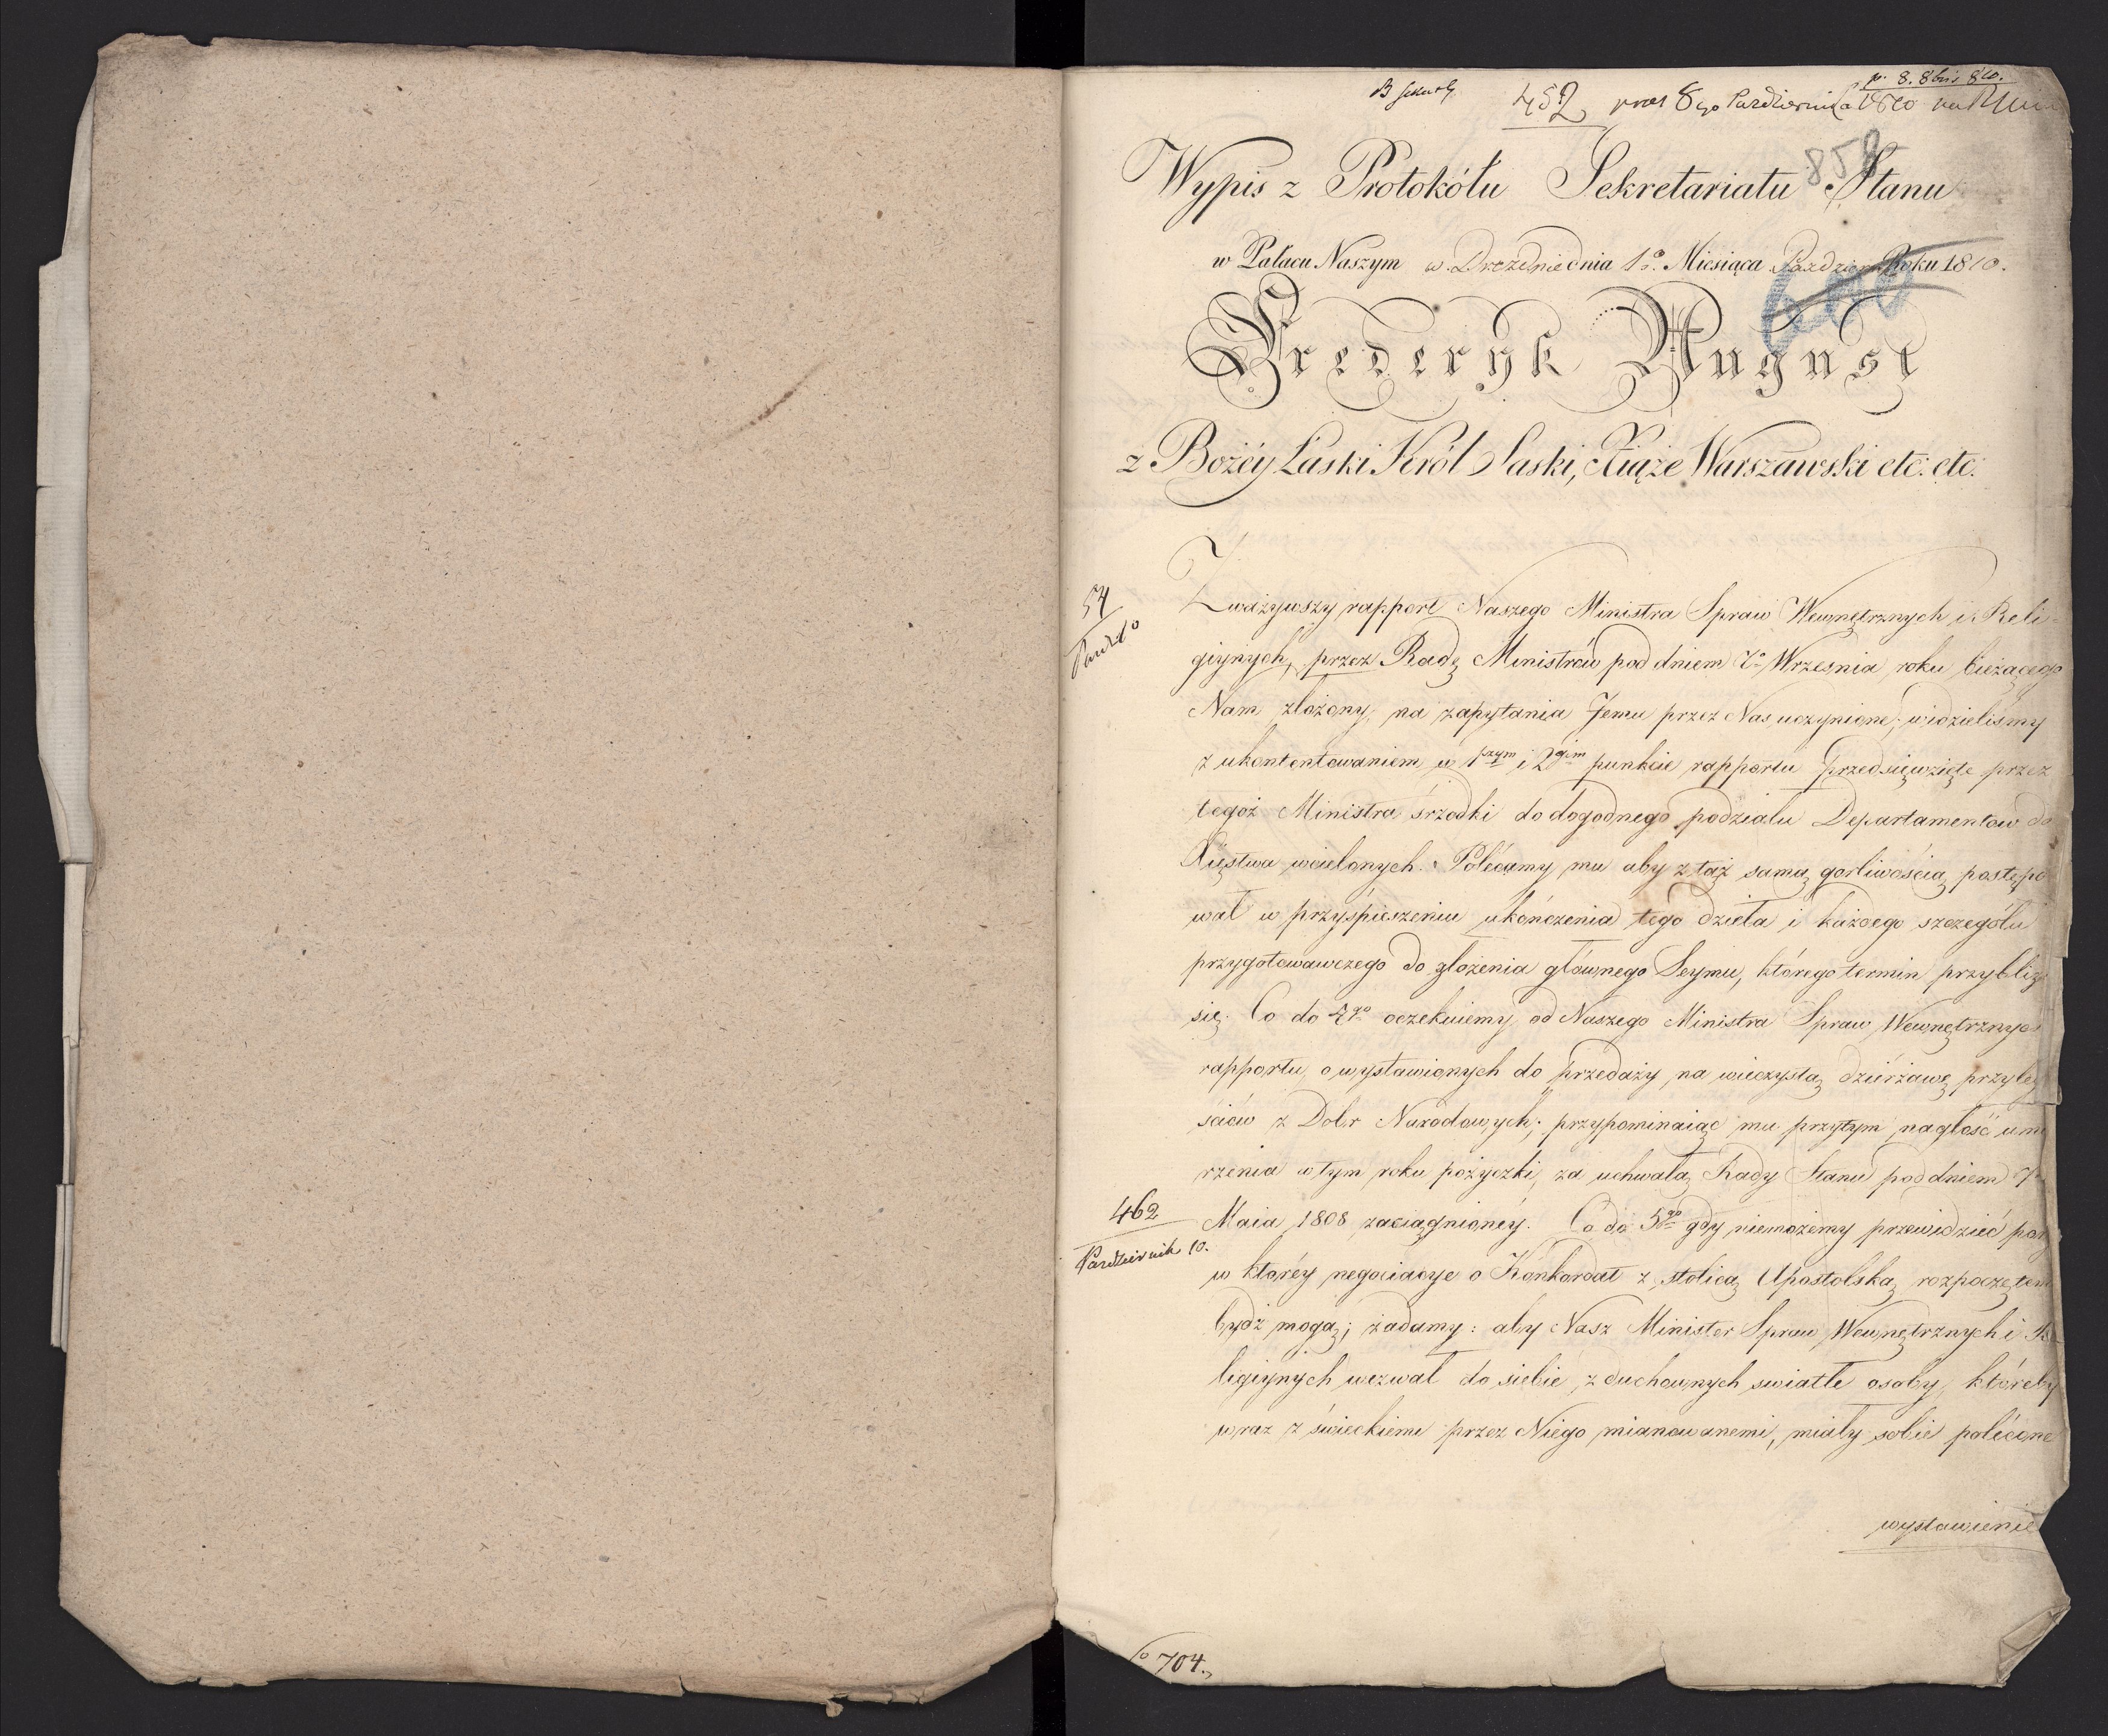 p. 8. 8bris 810.
452 8go Pazdziernika 1810
858
Wypis z Protokółu Sekretariatu Stanu
w Pałacu Naszym w Dreznie dnia 1o. Miesiąca Pazdzier. Roku 1810.
600
Fryderyk August
z Bożéy Łaski Król Saski, Xiąże Warszawski etc: etc:
54
Zważywszy rapport Naszego Ministra Spraw Wewnętrznych i Reli-
giynych, przez Radę Ministrów pod dniem 7o Wrzesnia roku bieżącego
Nam złożony, na zapytania Jemu przez Nas uczynione; widzielismy
z ukontentowaniem w 1szym i 2gim punkcie rapportu przedsięwzięte przez
tegoż Ministra śrzodki do dogodnego podziału Departamentow do
Xięstwa wcielonych. Polécamy mu aby z taż samą gorliwością postępo
wał w przyśpieszeniu ukończenia tego dzieła i każdego szczegółu
przygotowawczego do złożenia głównego Seymu, którego termin przybliża
się. Co do 4go oczekuiemy od Naszego Ministra Spraw Wewnętrznych
rapportu, o wystawionych do przedaży, na wieczystą dzierżawę przyleg
sciów z Dobr Narodowych; przypominaiąc mu przytym nagłość umo
rzenia w tym roku pożyczki, za uchwałą Rady Stanu pod dniem 7o
462
Maia 1808 zaciągnioney. Co do 5go gdy niemożemy przewidzieć pory
Pazdziernik 10.
w któréy negociacye o Konkordat z stolicą Apostolską rozpoczętemi
bydź mogą; żądamy: aby Nasz Minister Spraw Wewnętrznych i Re
ligiynych wezwał do siebie, z duchownych swiatłe osoby, któreby
wraz z świeckiemi przez Niego mianowanemi, miały sobie polécone
wystawienie
704.